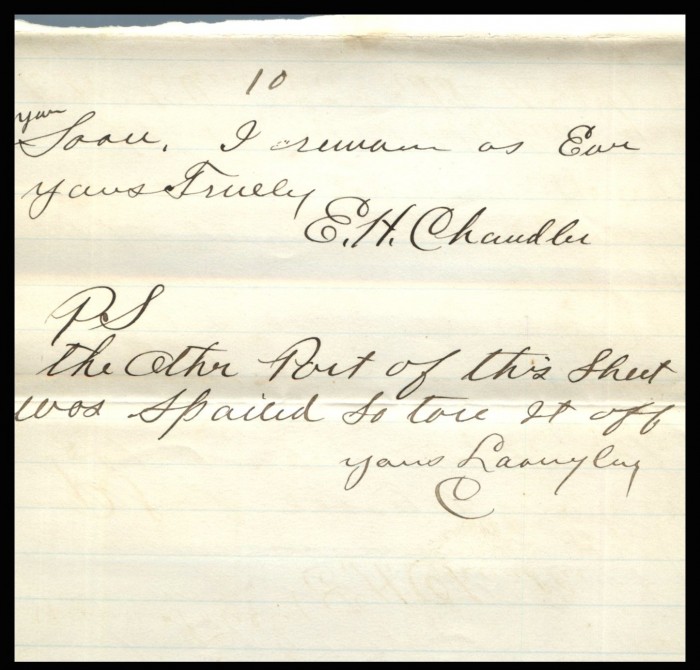 10
you
Soon. I remain as Ever
yours Truely
E. H. Chandler
PS
the other Part of this Sheet
was Spoiled So tore it off
yours Lovingly
C